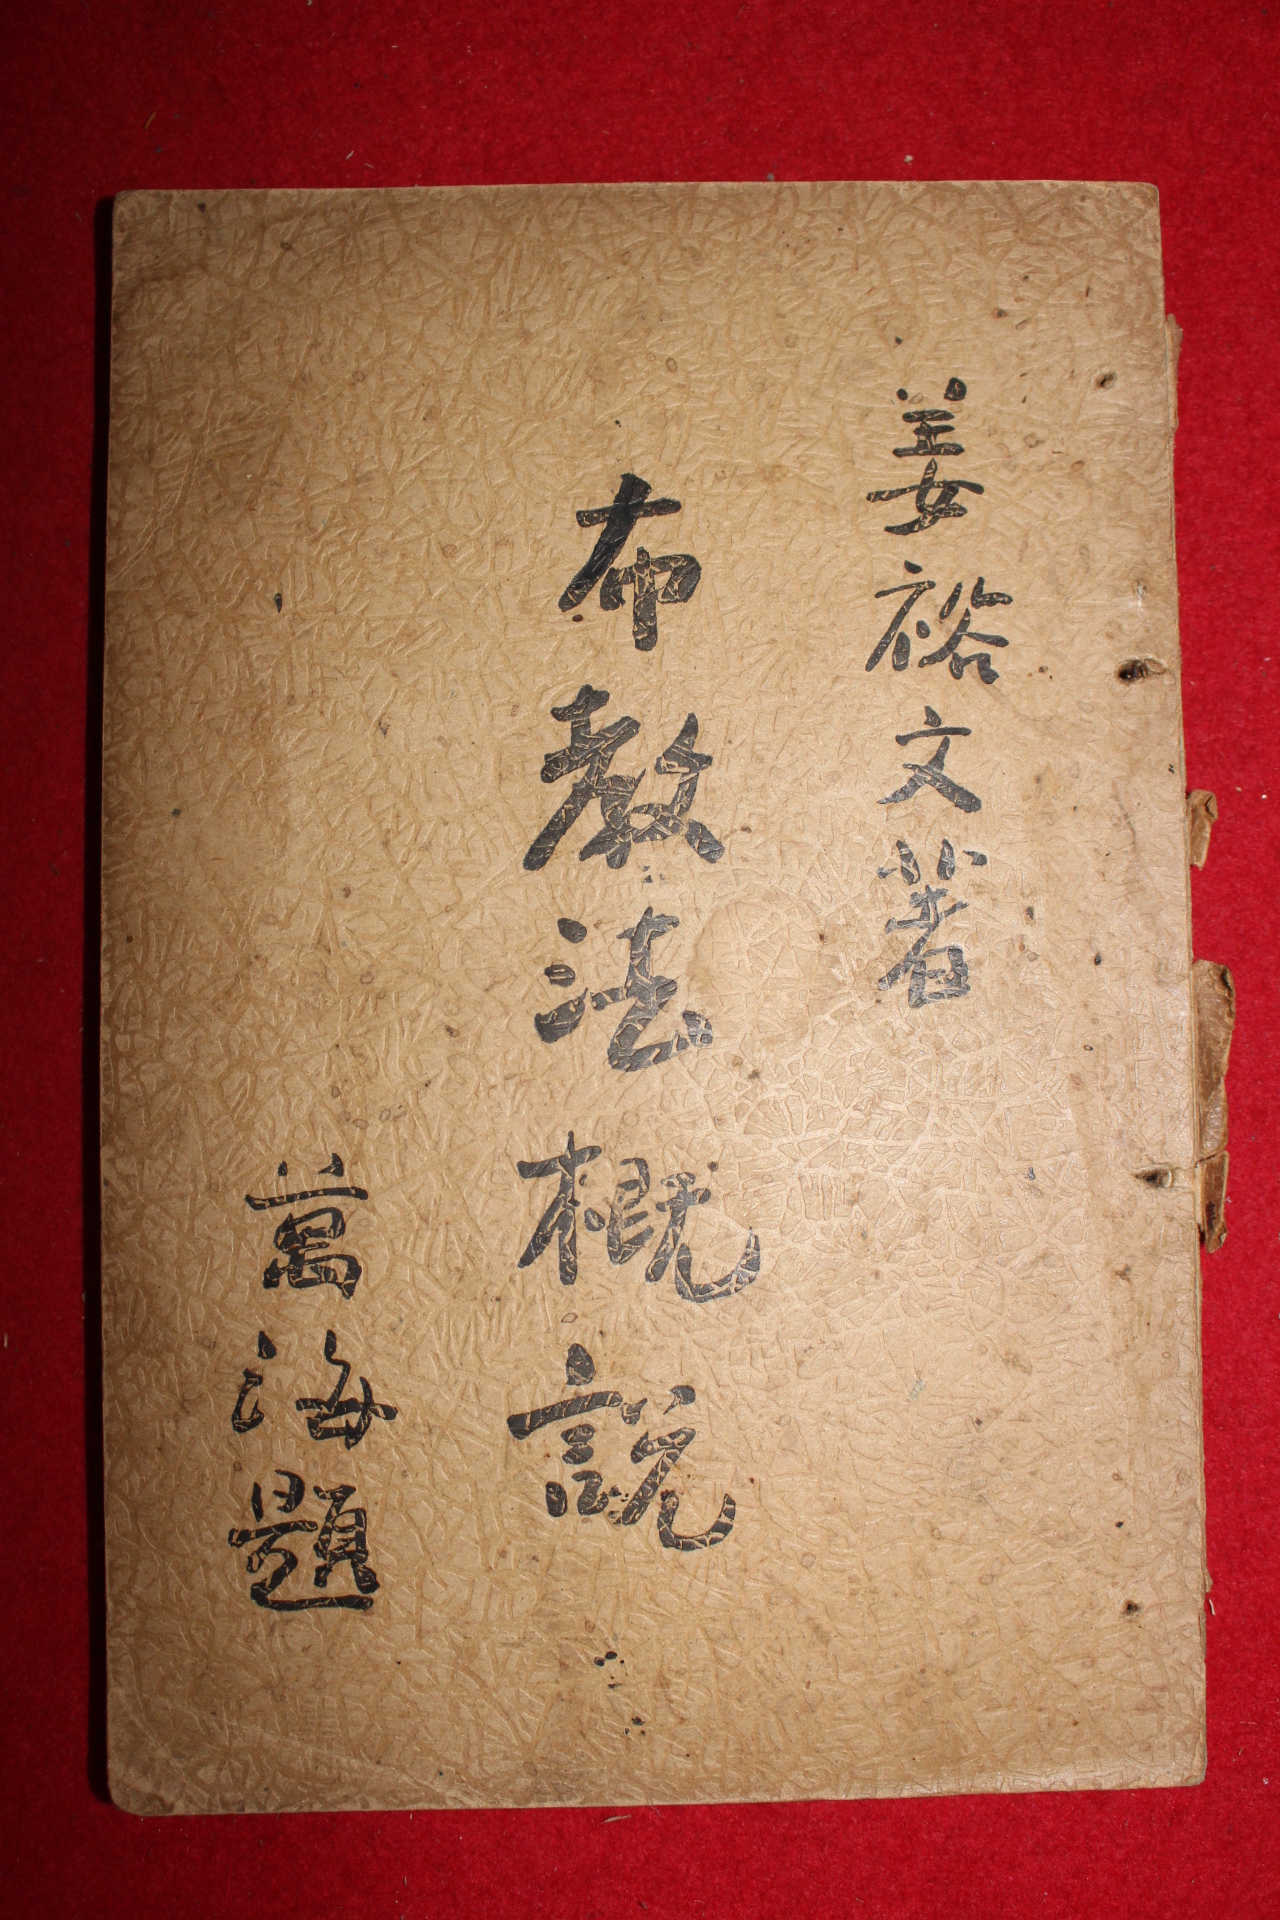 姜裕文著
布敎法槪說
萬海題